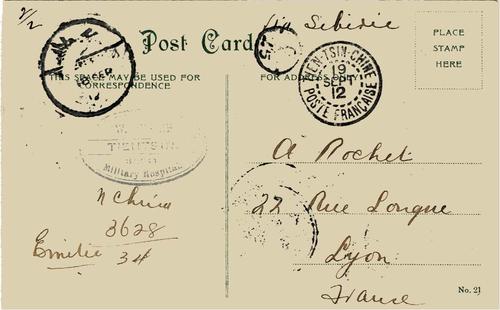 1/2
via Sibérie
Post Card
PLACE
STAMP
HERE
THIS SPACE MAY BE USED FOR
CORRESPONDENCE
FOR ADDRESS ONLY
TIEN-TSIN-CHINE
19
SEPT
12
POSTE FRANÇAISE
TIENTSIN
Military Hospital
A Rochet
22 Rue Longue
Lyon
France
3628
Emilie 34
No. 21